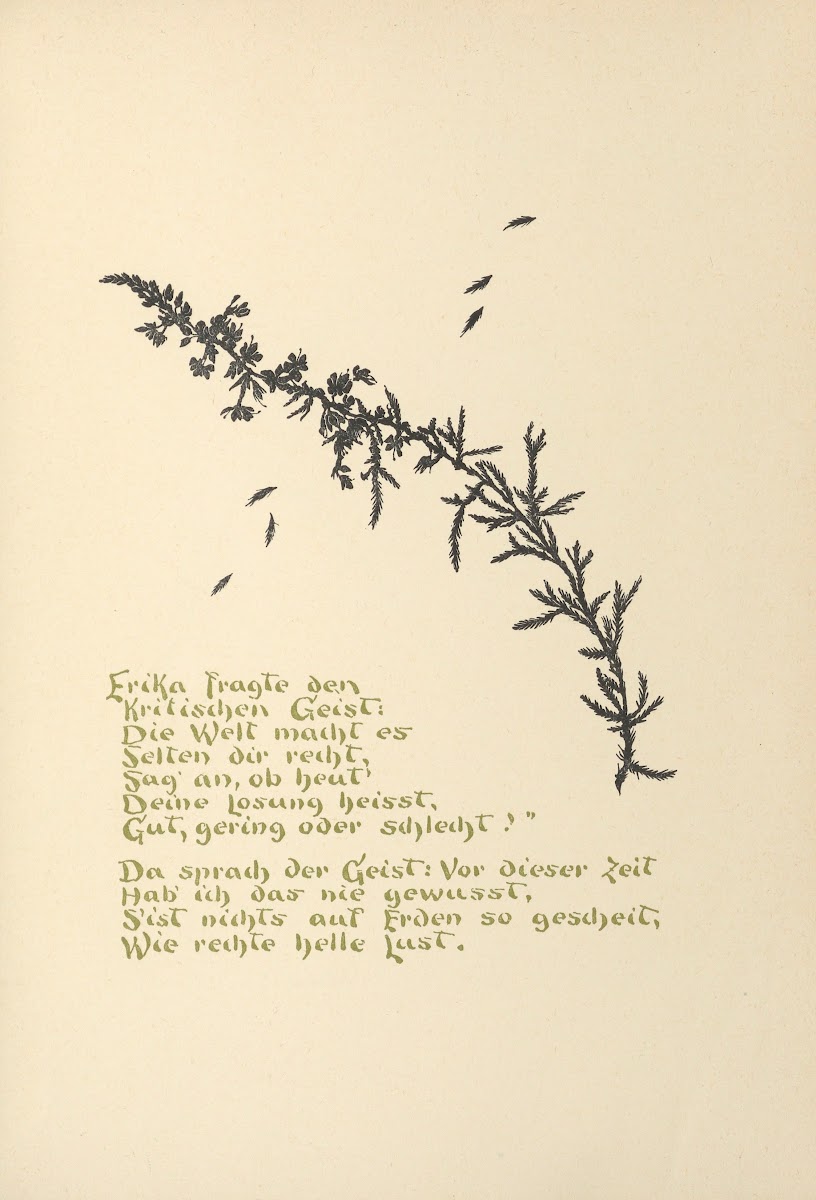 Erika fragte den
Kritischen Geist:
Die Welt macht es
Selten dir recht,
Sag' an, ob heut'
Deine Losung heisst,
Gut, gering oder schlecht!"
Da sprach der Geist: Vor dieser Zeit
Hab' ich das nie gewusst,
S'ist nichts auf Erden so gescheit,
Wie rechte helle Lust.